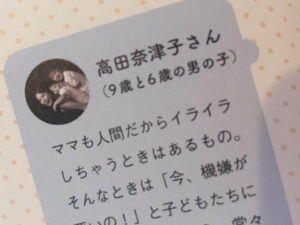 高田奈津子さん
（9歳と6歳の男の子）
ママも人間だからイライラ
しちゃうときはあるもの。
そんなときは「今、機嫌が
悪いの！」と子どもたちに
堂々